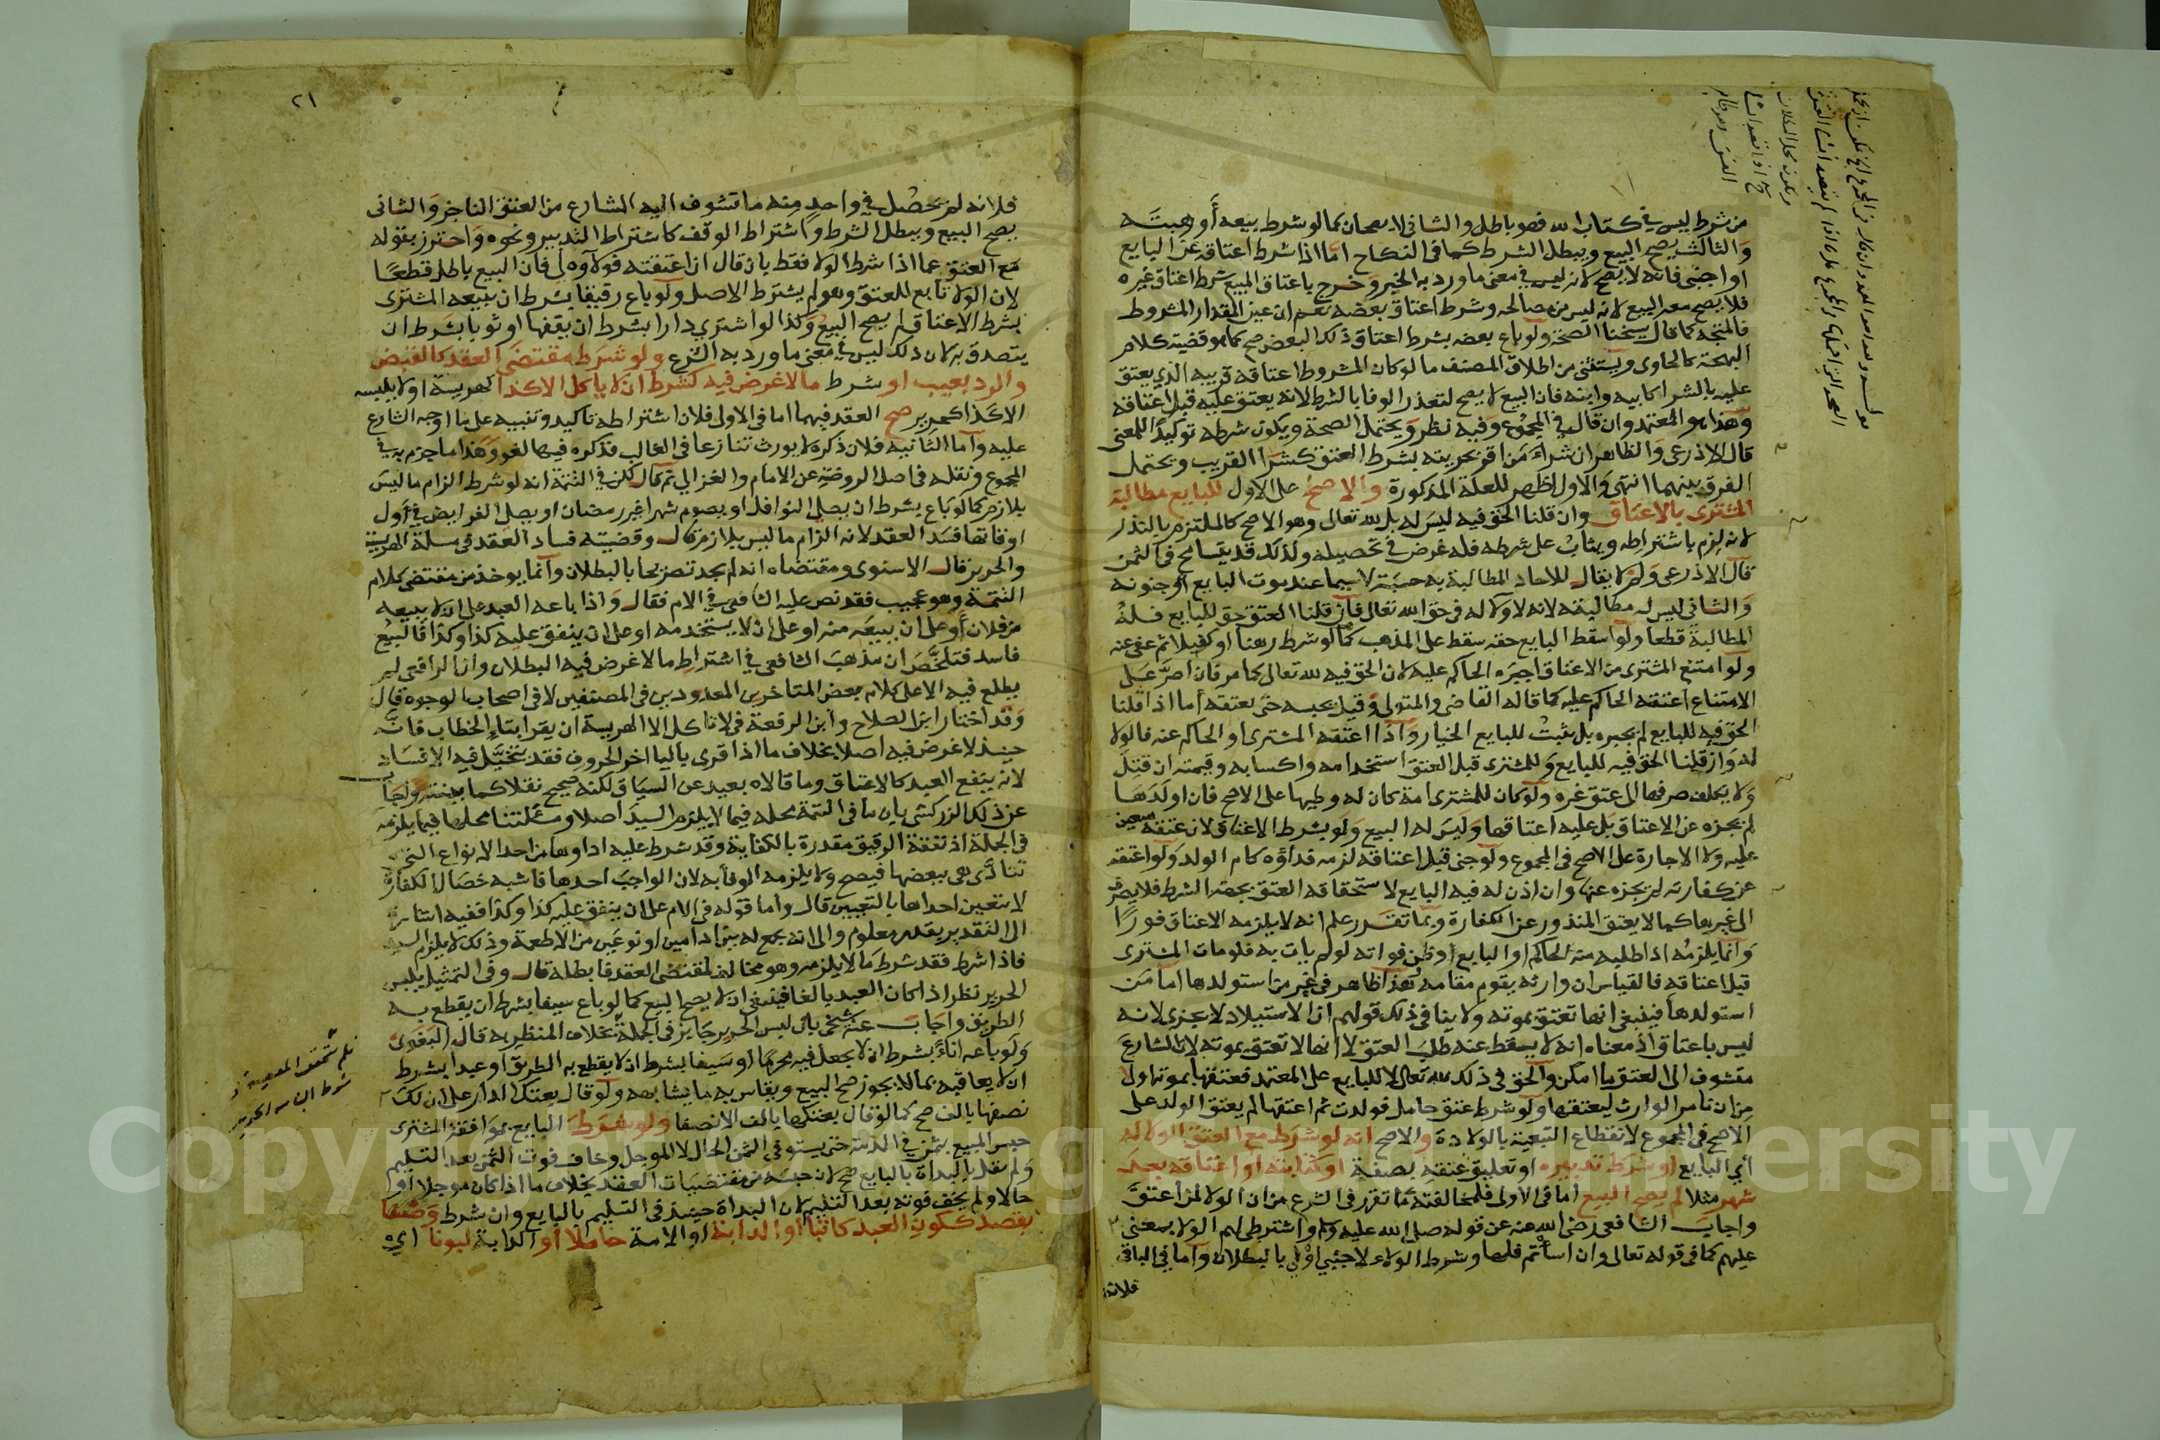 من شرط ليس في كتاب الله فهو باطل والثاني لا يصحان كما لو شرط بيعه أو هبته
والثالث يصح البيع ويبطل الشرط كما في النكاح اما اذا شرط اعتاقه عن البايع
او اجنبي فانه لا يصح لانه ليس في معنى ما ورد به الخبر وخرج باعتاق المبيع شرط اعتاق غيره
فلا يصح معه البيع لانه ليس من مصالحه وشرط اعتاق بعضه نعم ان عين المقدار المشروط
فالمتجه كما قال شيخنا الصحة ولو باع بعضه بشرط اعتاق ذلك البعض صح كما هو قضية كلام
البهجة كالحاوي ويستثنى من اطلاق المصنف ما لو كان المشروط اعتاقه قريبه الذي يعتق
عليه بالشرا كابيه وابنه فان البيع لا يصح لتعذر الوفا بالشرط لانه يعتق عليه قبل اعتاقه
وهذا هو المعتمد وان قال في المجموع وفيه نظر ويحتمل الصحة ويكون شرطه توكيدا للمعنى
قال الاذرعي والظاهر ان شراء من اقر بحريته بشرط العتق كشرا القريب ويحتمل
الفرق بينهما انتهى والاول اظهر للعلة المذكورة والاصح على الاول للبايع مطالبة
المشتري بالاعتاق وان قلنا الحق فيه ليس له بل لله تعالى وهو الاصح كالملتزم بالنذر
لانه لزم باشتراطه ويثاب على شرطه فله غرض في تحصيله ولذلك قد يتسامح في الثمن
قال الاذرعي ولم لا يقال للاحاد المطالبة به حسبة لا سيما عند موت البايع او جنونه
والثاني ليس له مطالبته لانه لا ولاية له في حق الله تعالى فان قلنا العتق حق للبايع فله
المطالبة قطعا ولو اسقط البايع حقه سقط على المذهب كما لو شرط رهنا او كفيلا ثم عفى عنه
ولو امتنع المشتري من الاعتاق اجبره الحاكم عليه لان الحق فيه لله تعالى كما مر فان اصر على
الامتناع اعتقه الحاكم عليه كما قاله القاضي والمتولي وقيل يحبسه حتى يعتقه أما اذا قلنا
الحق فيه للبايع لم يجبره بل يثبت للبايع الخيار واذا اعتقه المشتري او الحاكم عنه فالولا
له وان قلنا الحق فيه للبايع وللمشتري قبل العتق استخدامه واكسابه وقيمته ان قتل
ولا يكلف صرفها الى عتق غيره ولو كان للمشتري امة كان له وطيها على الاصح فان اولدها
لم يجزه عن الاعتاق بل عليه اعتاقها وليس له البيع ولو بشرط الاعتاق لان عتقه متعين
عليه ولا الاجارة على الاصح في المجموع ولو جنى قبل اعتاقه لزمه فداؤه كام الولد ولو اعتقه
عن كفارته لم يجزه عنها وان اذن له فيه البايع لاستحقاقه العتق بجهة الشرط فلا يصرف
الى غيرها كما لا يعتق المنذور عن الكفارة وبما تقرر علم انه لا يلزمه الاعتاق فورا
وانما يلزمه اذا طلبه منه الحاكم او البايع أو ظن فواته لو لم يات به فلو مات المشتري
قبل اعتاقه فالقياس ان وارثه يقوم مقامه وهذا ظاهر في غير من استولدها اما من
استولدها فينبغي انها تعتق بموته ولا ينافي ذلك قولهم ان الاستيلاد لا يجزي لانه
ليس باعتاق اذ معناه انه لا يسقط عنه طلب العتق لا انها لا تعتق بموته لان الشارع
متشوف الى العتق ما امكن والحق في ذلك لله تعالى لا للبايع على المعتمد فعتقها بموته اولى
من ان نامر الوارث ليعتقها ولو شرط عتق حامل فولدت ثم اعتقها لم يعتق الولد على
الاصح في المجموع لانقطاع التبعية بالولادة والاصح انه لو شرط مع العتق الولا له
أي البايع او شرط تدبيره او تعليق عتقه بصفة او كتابته او اعتاقه بعد
شهر مثلا لم يصح البيع اما في الاولى فلمخالفته ما تقرر في الشرع من ان الولا لمن أعتق
واجاب الشافعي رضي الله عنه عن قوله صلى الله عليه وسلم واشترطي لهم الولا بمعنى
عليهم كما في قوله تعالى وان اسأتم فلها وشرط الولاء لاجنبي اولى بالبطلان واما في الباقي
فلانه
٢١
فلانه لم يحصل في واحد منه ما تشوف اليه الشارع من العتق الناجز والثاني
يصح البيع ويبطل الشرط واشتراط الوقف كاشتراط التدبير ونحوه واحترز بقوله
مع العتق عما اذا شرط الولا فقط بان قال ان اعتقته فولاؤه لي فان البيع باطل قطعا
لان الولا تابع للعتق وهو لم يشترط الاصل ولو باع رقيقا بشرط ان يبيعه المشتري
بشرط الاعتاق لم يصح البيع وكذا لو اشترى دارا بشرط ان يقفها او ثوبا بشرط ان
يتصدق به لان ذلك ليس في معنى ما ورد به الشرع ولو شرط مقتضى العقد كالقبض
والرد بعيب او شرط ما لا غرض فيه كشرط ان لا ياكل الا كذا كهريسة او لا يلبسه
الا كذا كحرير صح العقد فيهما اما في الاولى فلان اشتراطه تاكيد وتنبيه على ما اوجبه الشارع
عليه واما الثانية فلان ذكره لا يورث تنازعا في الغالب فذكره فيها لغو وهذا ما جزم به في
المجموع ونقله في اصل الروضة عن الامام والغزالي ثم قال لكن في التتمة انه لو شرط الزام ما ليس
بلازم كما لو باع بشرط ان يصلي النوافل او يصوم شهرا غير رمضان او يصلي الفرايض في أول
اوقاتها فسد العقد لانه الزام ما ليس بلازم قال وقضيته فساد العقد في مسلة الهريسة
والحرير قال الاسنوي ومقتضاه انه لم يجد تصريحا بالبطلان وانما يوخذ من مقتضى كلام
التتمة وهو عجيب فقد نص عليه الشافعي في الام فقال واذا باعه العبد على ان لا يبيعه
من فلان أو على ان يبيعه منه او على ان لا يستخدمه او على ان ينفق عليه كذا وكذا فالبيع
فاسد فتلخص ان مذهب الشافعي في اشتراط ما لا غرض فيه البطلان وان الرافعي لم
يطلع فيه الا على كلام بعض المتاخرين المعدودين في المصنفين لا في اصحاب الوجوه قال
وقد اختار ابن الصلاح وابن الرفعة في لا تاكل الا الهريسة ان يقرا بتاء الخطاب فانه
حينيذ لا غرض فيه اصلا بخلاف ما اذا قري باليا اخر الحروف فقد يتخيل فيه الافساد
لانه ينفع العبد كالاعتاق وما قالاه بعيد عن السياق لكنه صحيح نقلا كما بينته واجاب
عن ذلك الزركشي بان ما في التتمة محله فيما لا يلزم السيد اصلا ومسئلتنا محلها فيما يلزمه
في الجملة اذ نفقة الرقيق مقدرة بالكفاية وقد شرط عليه اداوها من احد الانواع التي
تتادى هي ببعضها فيصح ولا يلزمه الوفا به لان الواجب احدها فاشبه خصال الكفارة
لا تتعين احداها بالتعيين قال واما قوله في الام على ان ينفق عليه كذا وكذا ففيه اشارة
الى التقدير بقدر معلوم والى انه يجمع له بين ادامين او نوعين من الاطعمة وذلك لا يلزم السيد
فاذا شرط فقد شرط ما لا يلزمه وهو مخالف لمقتضى العقد فابطله قال وفي التمثيل بلبس
الحرير نظر اذا كان العبد بالغا فينبغي ان لا يصح البيع كما لو باع سيفا بشرط ان يقطع به
الطريق واجاب عنه شيخي بان ليس الحرير جايز في الجملة بخلاف المنظر به قال البغوي
ولو باعه اناءً بشرط ان لا يجعل فيه محرما أو سيفا بشرط ان لا يقطع به الطريق أو عبدا بشرط
ان لا يعاقبه بما لا يجوز صح البيع ويقاس به ما يشابهه ولو قال بعتك الدار على ان لك
نصفها بالف صح كما لو قال بعتكها بالف الا نصفها ولو شرط البايع بموافقة المشتري
حبس المبيع بثمن في الذمة حتى يستوفي الثمن الحال لا الموجل وخاف فوت الثمن بعد التسليم
ولم نقل بالبداة بالبايع صح لان حبسه من مقتضيات العقد بخلاف ما اذا كان موجلا أو
حالا ولم يخف فوته بعد التسليم لان البداة حينيذ في التسليم بالبايع وان شرط وصفا
يقصد ككون العبد كاتبا أو الدابة او الامة حاملا أو الدابة لبونا اي
فلم تتحقق المعصية في
شرط الباس الحرير
Copyright © King Saud University